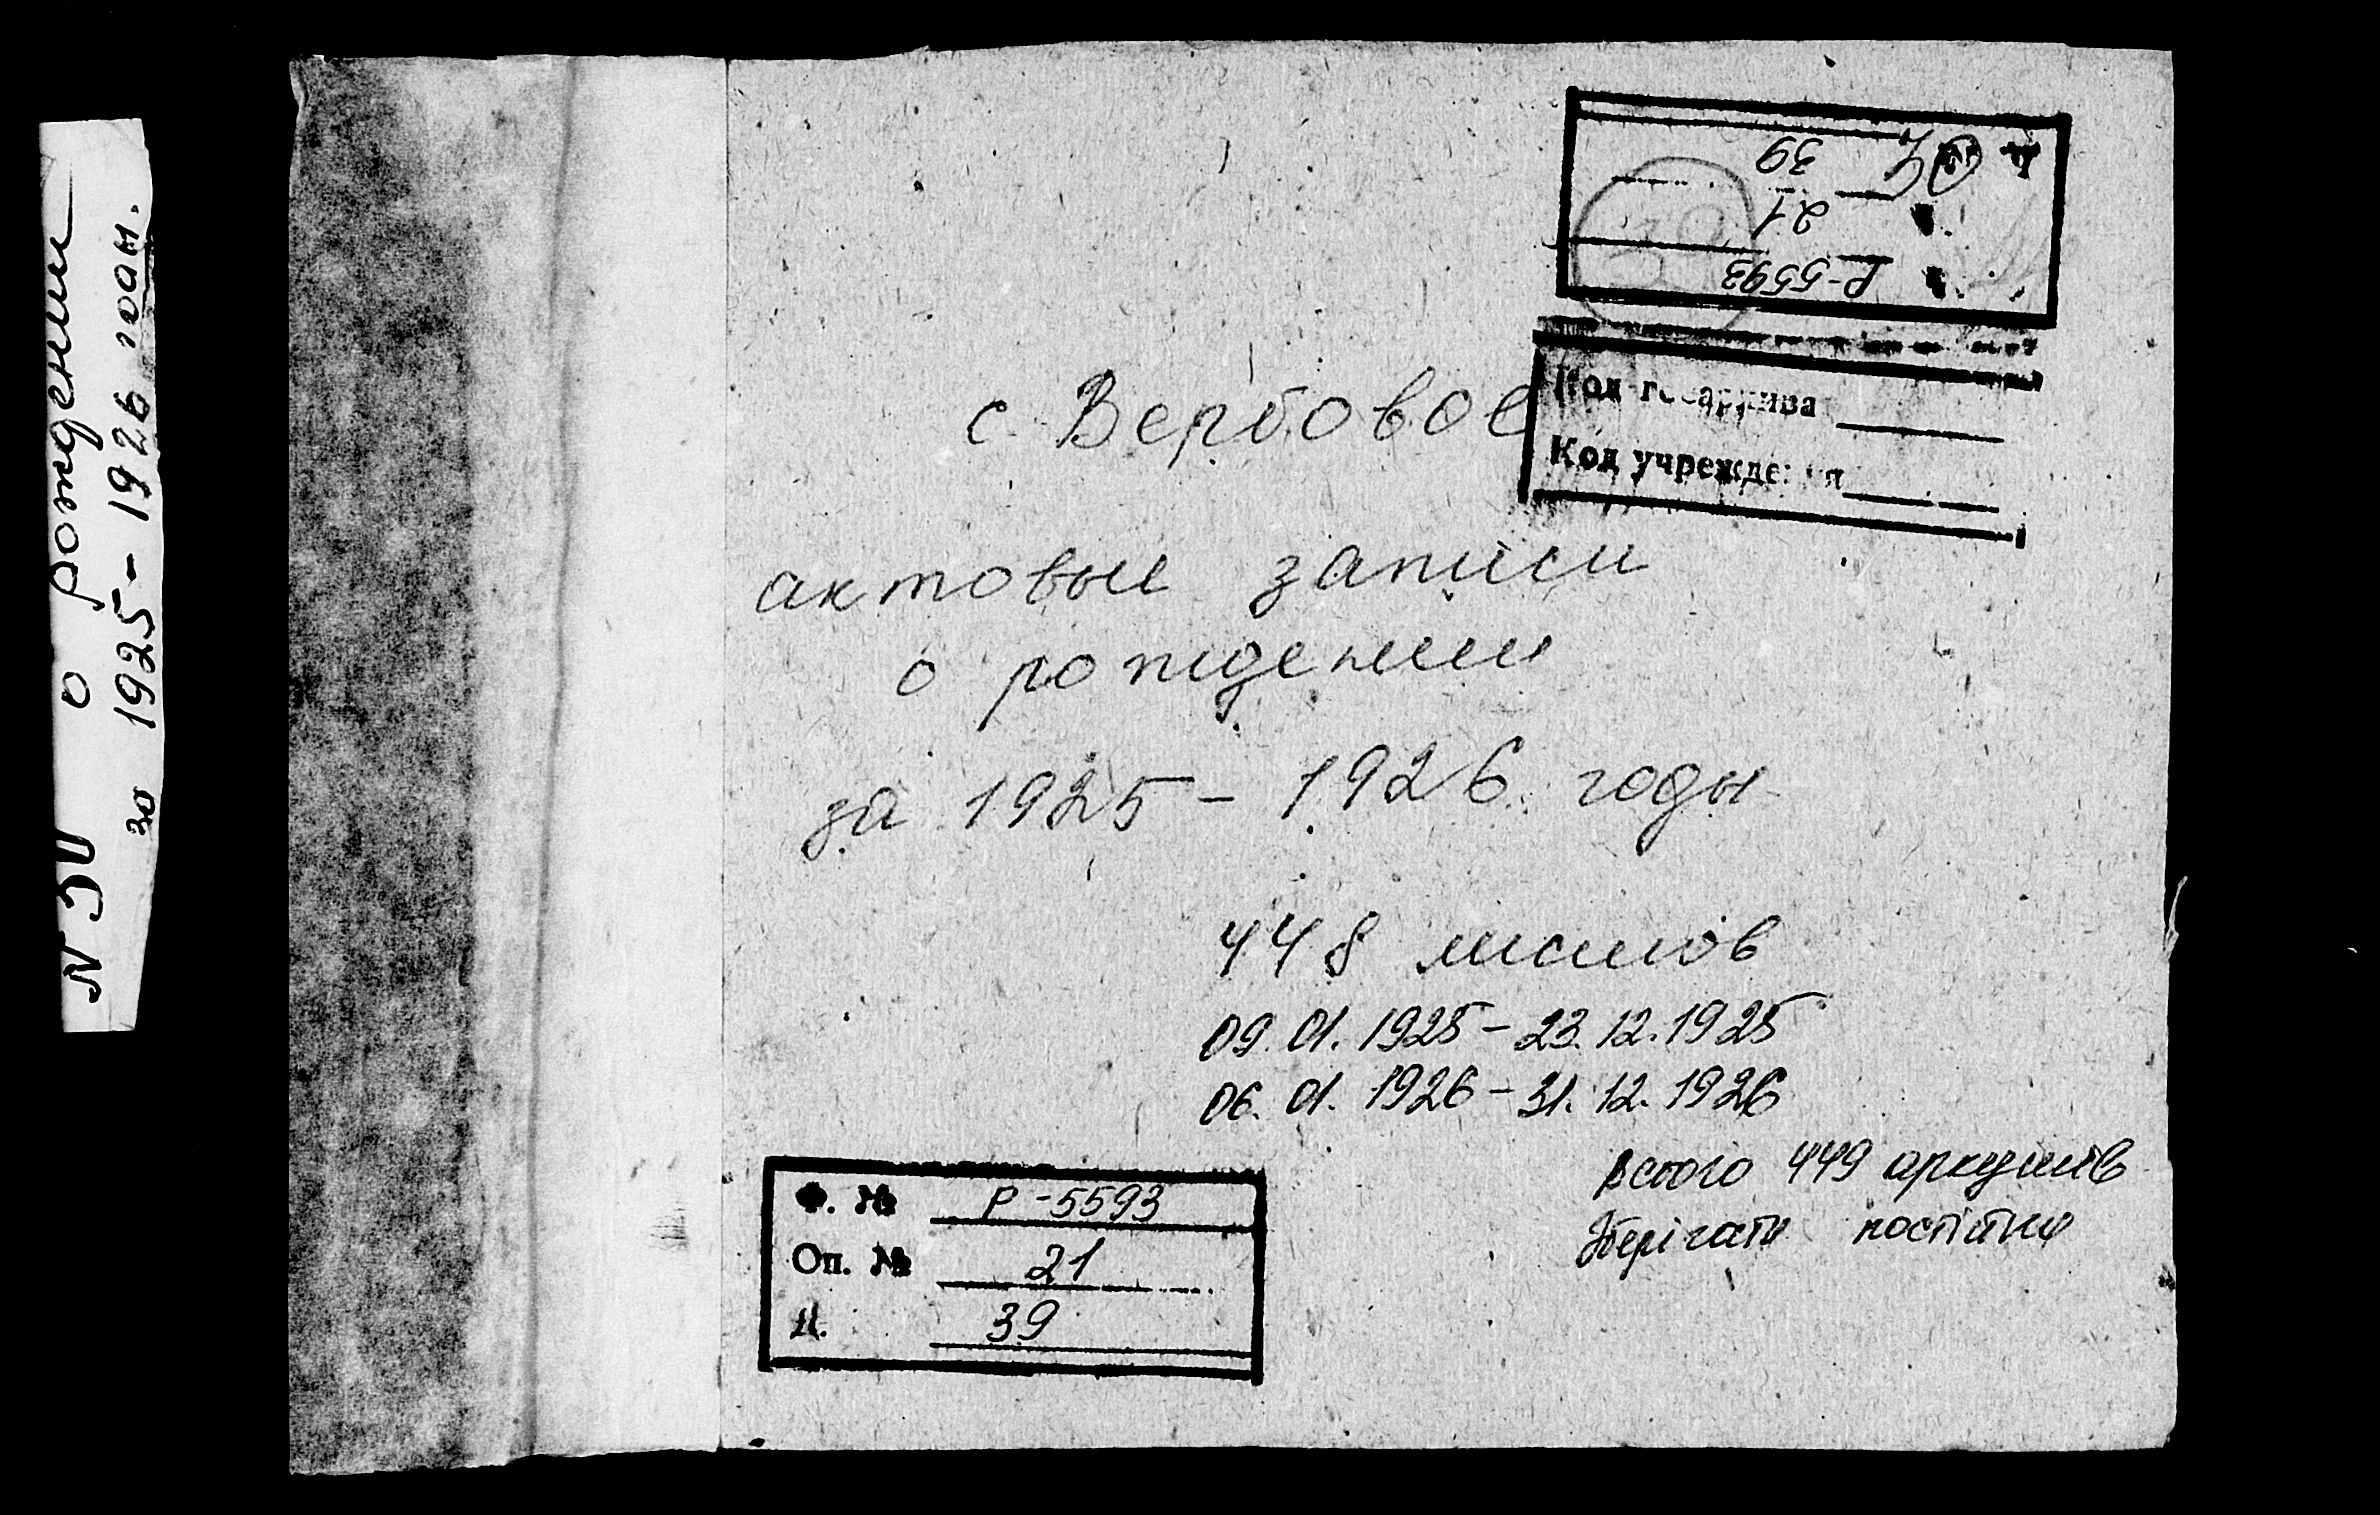 о рождении
за 1925-1926 годы.
с Вербовое
Код госархива
Код учреждения
актовые записи
о рождении
за 1925 - 1926 годы
448 листов
09.01.1925 - 23.12.1925
06.01.1926 - 31.12.1926
всього 449 аркушів
Зберігати постійно
Ф. № Р-5593
Оп. № 21
Д. 39
Р-5593
21
39